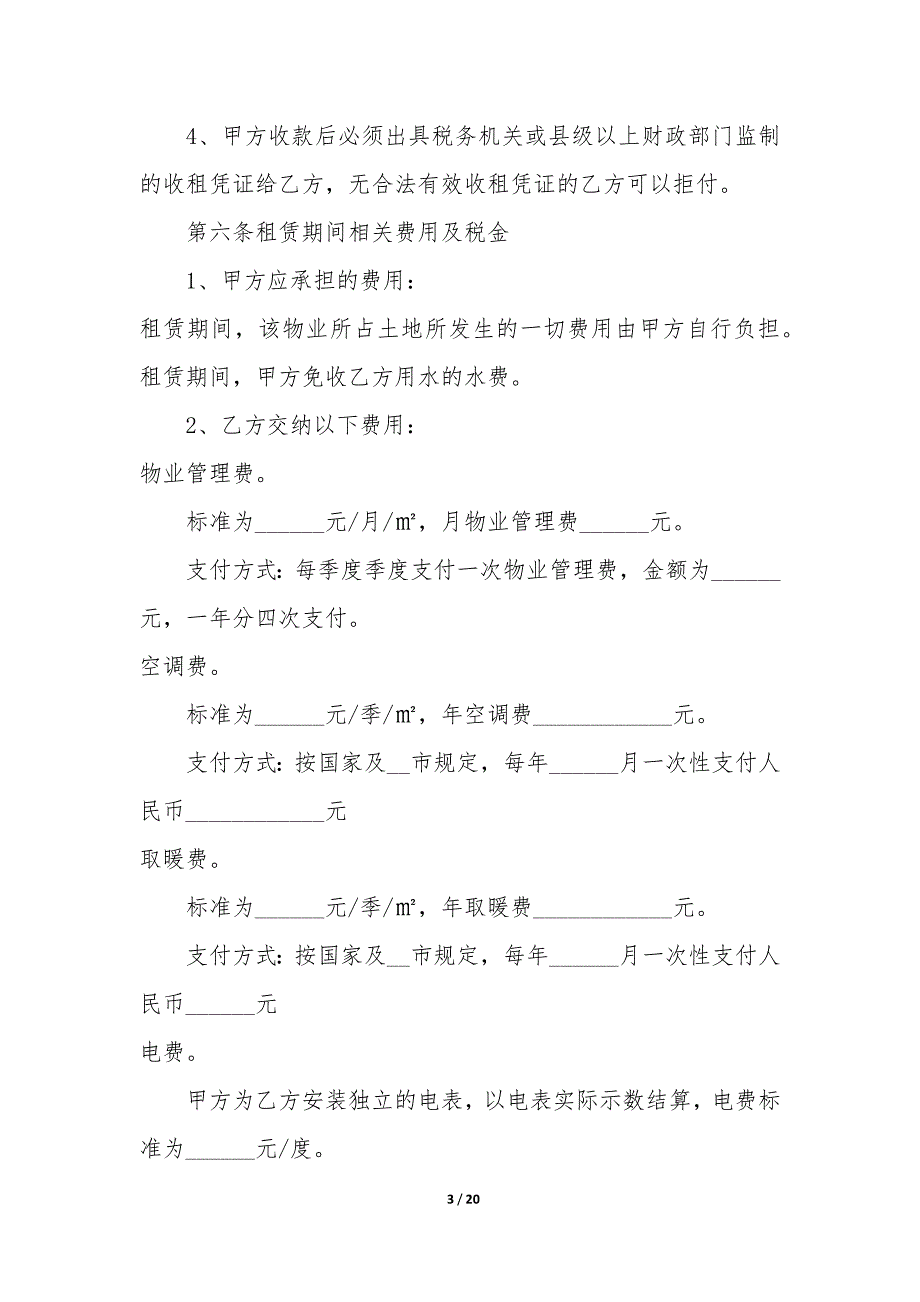 4、甲方收款后必须出具税务机关或县级以上财政部门监制
的收租凭证给乙方，无合法有效收租凭证的乙方可以拒付。
第六条租赁期间相关费用及税金
1、甲方应承担的费用：
租赁期间，该物业所占土地所发生的一切费用由甲方自行负担。
租赁期间，甲方免收乙方用水的水费。
2、乙方交纳以下费用：
物业管理费。
标准为______元/月/㎡，月物业管理费______元。
支付方式：每季度季度支付一次物业管理费，金额为______
元，一年分四次支付。
空调费。
标准为______元/季/㎡，年空调费____________元。
支付方式：按国家及__市规定，每年______月一次性支付人
民币____________元
取暖费。
标准为______元/季/㎡，年取暖费____________元。
支付方式：按国家及__市规定，每年______月一次性支付人
民币______元
电费。
甲方为乙方安装独立的电表，以电表实际示数结算，电费标
准为______元/度。
3 / 20